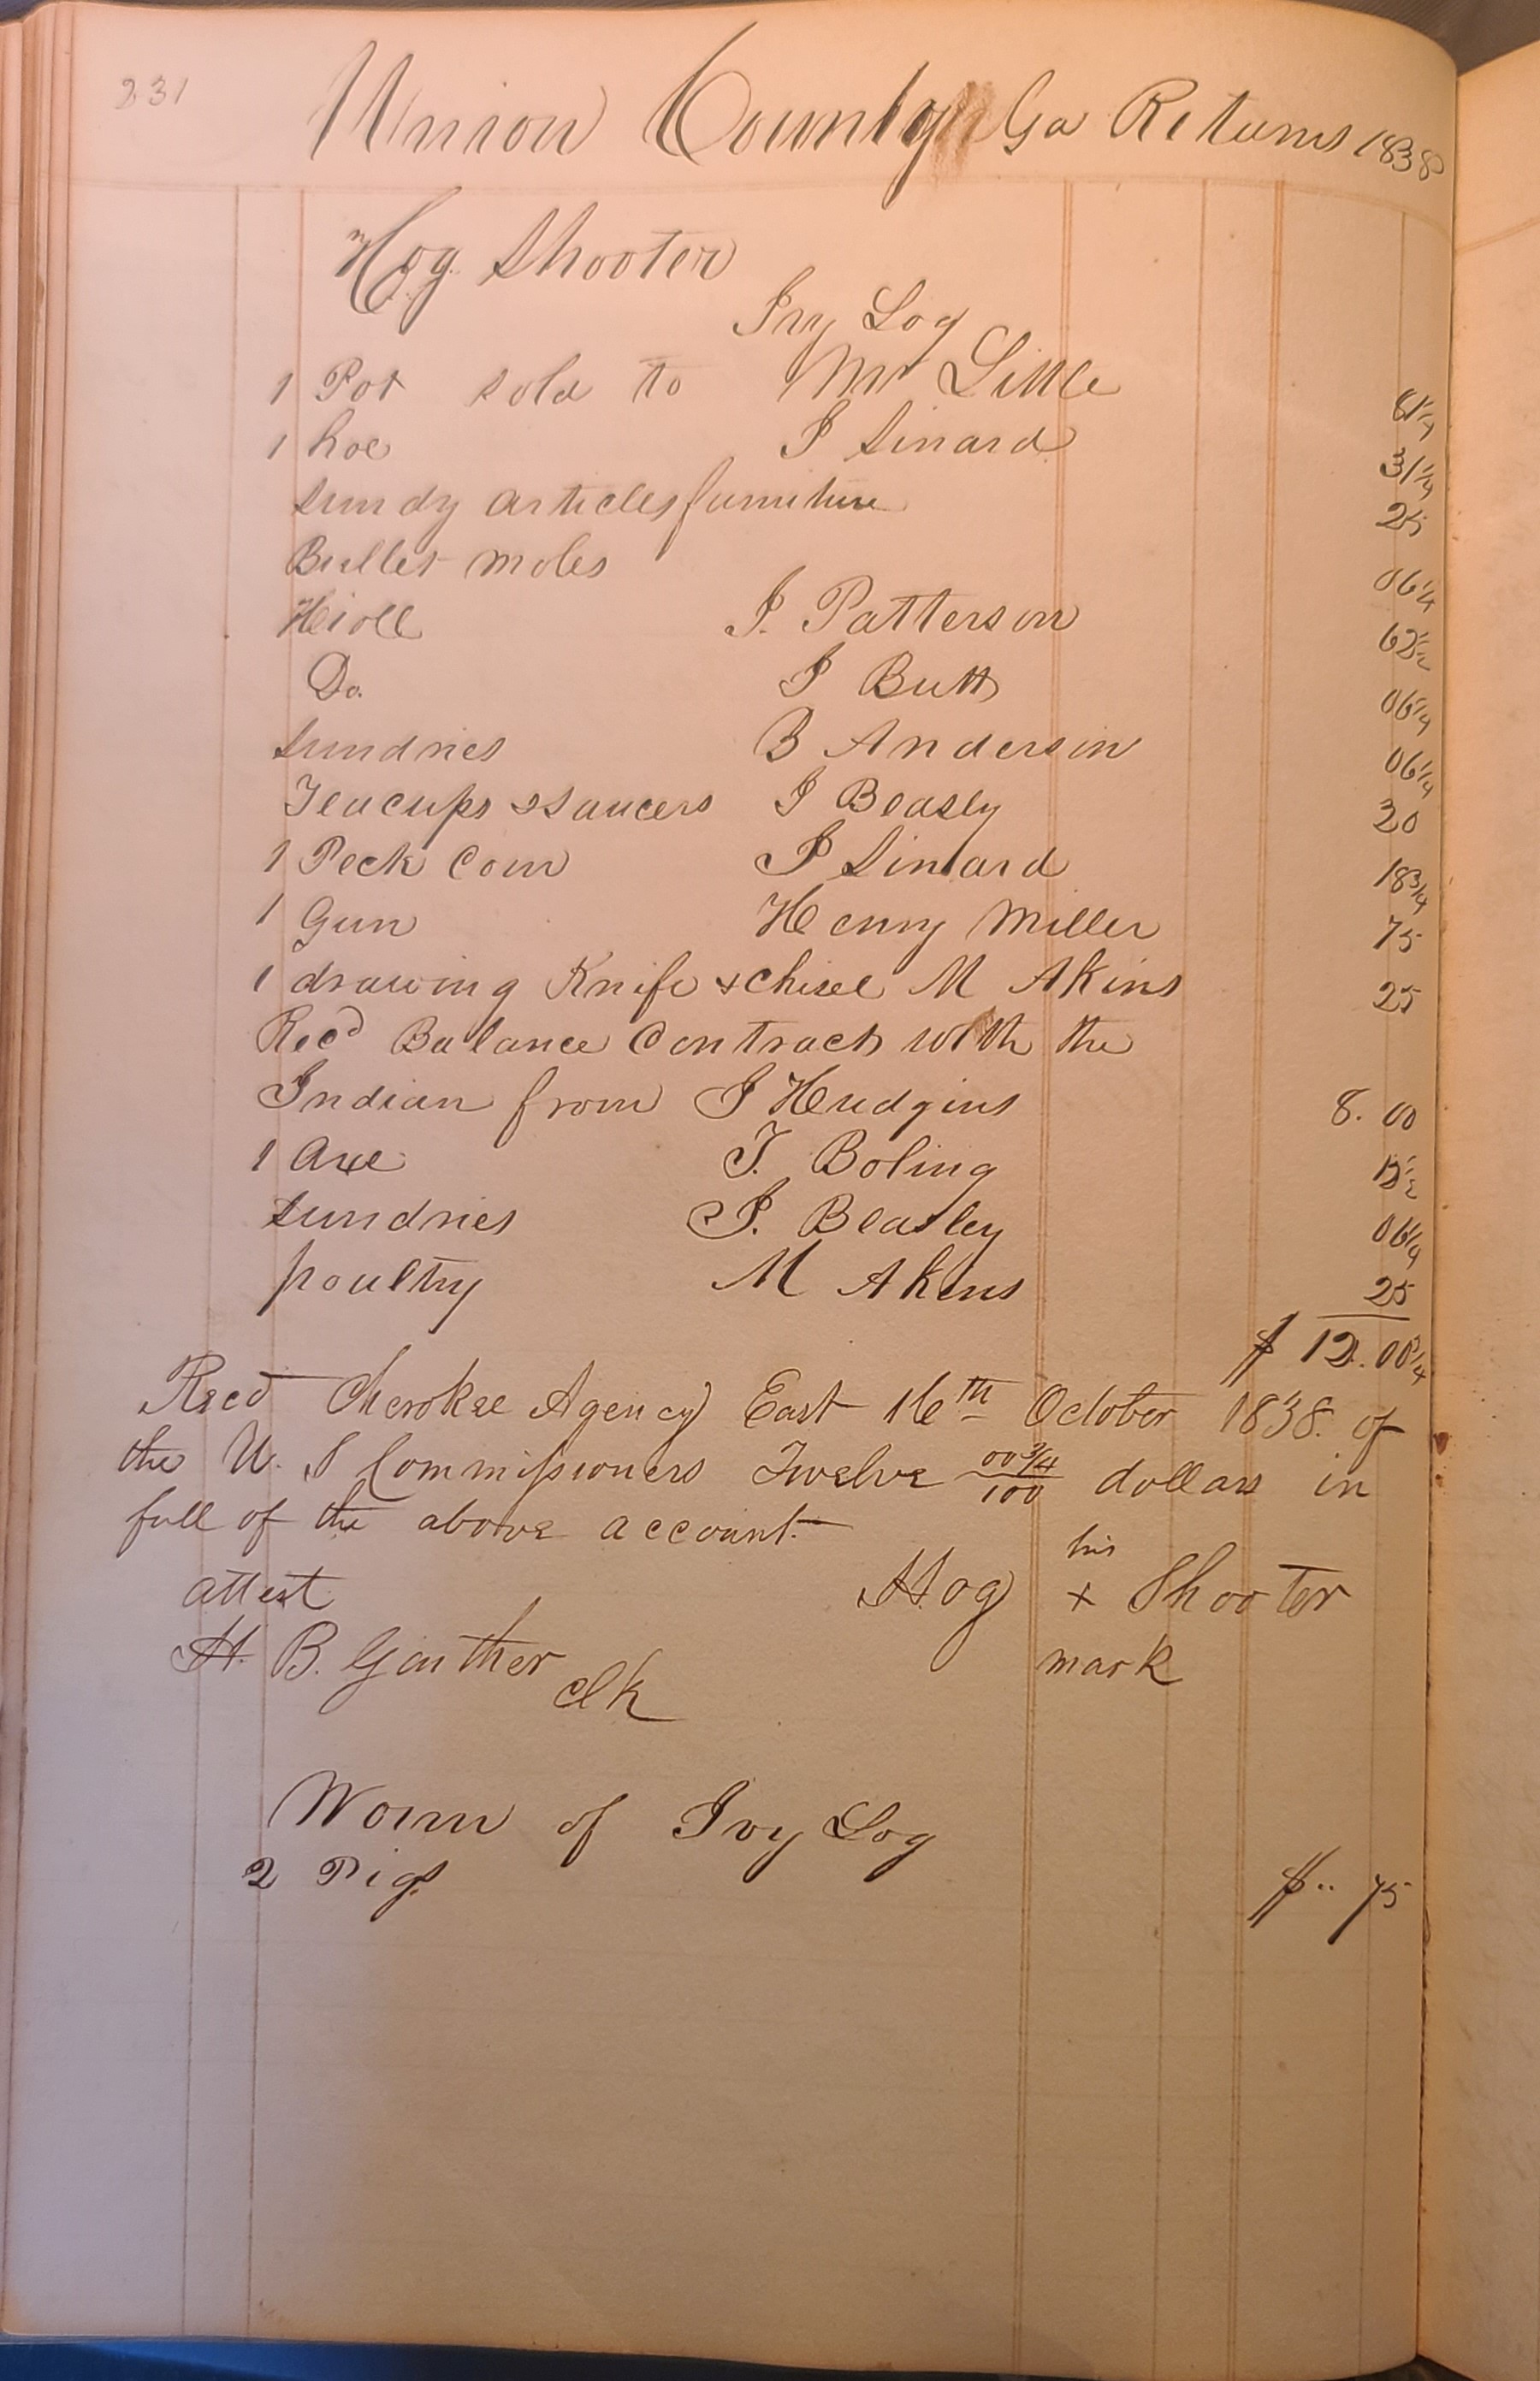 231
Union County Ga Returns 1838
Hog Shooter
Ivy Log
1 Pot sold to Mr Little 81 1/4
1 hoe J Sinard 31 1/4
Sundy articles furniture 25
Bullet moles 06 1/4
J. Patterson 62 1/2
Do. J Butt 06 1/4
Sundries B Anderson 06 1/4
Teacups & Saucers J Beasly 20
1 Peck Corn P Sinard 18 3/4
1 Gun Henry Miller 75
1 drawing Knife & chisel M Akins 25
Recd Balance Contract with the
Indian from J Hudgins 8.00
1 Axe T. Boling 12 1/2
Sundries J. Beasley 06 1/4
poultry M Akins 25
$ 12.00 3/4
Recd Cherokee Agency East 16th October 1838. of
the U. S Commissioners Twelve 00 3/4 / 100 dollars in
full of the above account.
his
attest Hog x Shooter
H. B. Gaither clk mark
Worm of Ivy Log
2 Pigs $.. 75